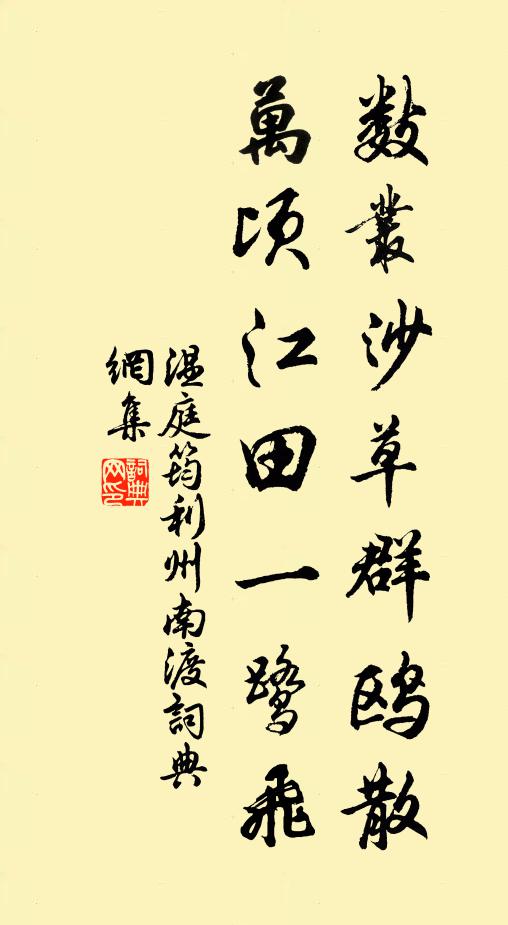 数叢沙草群鸥散
萬頃江田一鷺飛
温庭筠利州南渡詞典
網集
詞典
网印